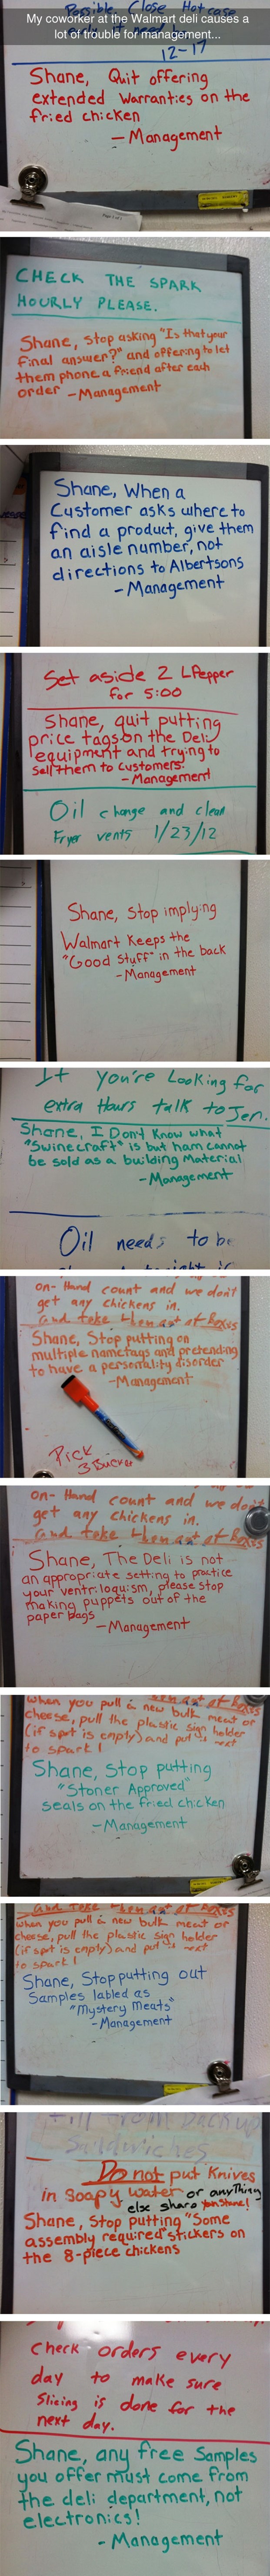 Possible. Close Hot case
My coworker at the Walmart deli causes a
lot of trouble for management...
12-17
Shane, Quit offering
extended warranties on the
fried chicken
- Management
CHECK THE SPARK
HOURLY PLEASE.
Shane, Stop asking "Is that your
final answer?" and offering to let
them phone a friend after each
order - Management
Shane, When a
Customer asks where to
find a product, give them
an aisle number, not
directions to Albertsons
- Management
Set aside 2 LPepper
for 5:00
Shane, quit putting
price tags on the Deli
equipment and trying to
sell them to customers!
- Management
Oil change and clean
Fryer vents 1/23/12
Shane, Stop implying
Walmart Keeps the
"Good Stuff" in the back
- Management
If you're Looking for
extra Hours talk to Jen.
Shane, I Don't Know what
"Swinecraft" is but ham cannot
be sold as a building Material
- Management
Oil needs to be
on-Hand count and we don't
get any chickens in.
and take them out of Boxes
Shane, Stop putting on
multiple nametags and pretending
to have a personality disorder
- Management
Pick
3 Buckets
on-Hand count and we don't
get any chickens in.
and take them out of Boxes
Shane, The Deli is not
an appropriate setting to practice
your ventriloquism, please stop
making puppets out of the
paper bags
- Management
them out of Boxes
when you pull a new bulk meat or
cheese, pull the plastic sign holder
(if spot is empty) and put it next
to spark!
Shane, Stop putting
"Stoner Approved"
seals on the fried chicken
- Management
and take them out of Boxes
when you pull a new bulk meat or
cheese, pull the plastic sign holder
(if spot is empty) and put it next
to spark!
Shane, Stop putting out
Samples labled as
"Mystery Meats"
- Management
Fill from backup
Sandwiches
Do not put Knives
in Soapy water or anything
else sharp
Shane, Stop putting "Some
assembly required" stickers on
the 8-piece chickens
Check orders every
day to make sure
Slicing is done for the
next day.
Shane, any free Samples
you offer must come from
the deli department, not
electronics!
- Management